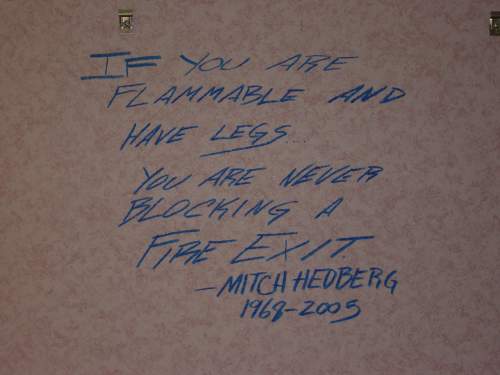 IF YOU ARE
FLAMMABLE AND
HAVE LEGS...
YOU ARE NEVER
BLOCKING A
FIRE EXIT.
- MITCH HEDBERG
1968-2005